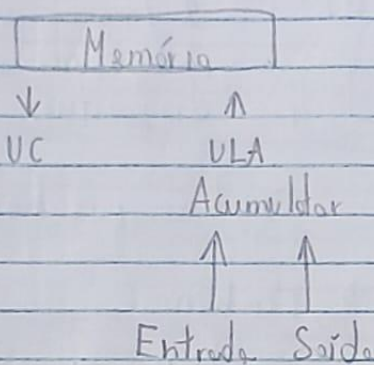 Memória
UC ULA
Acumuldor
Entrada Saída